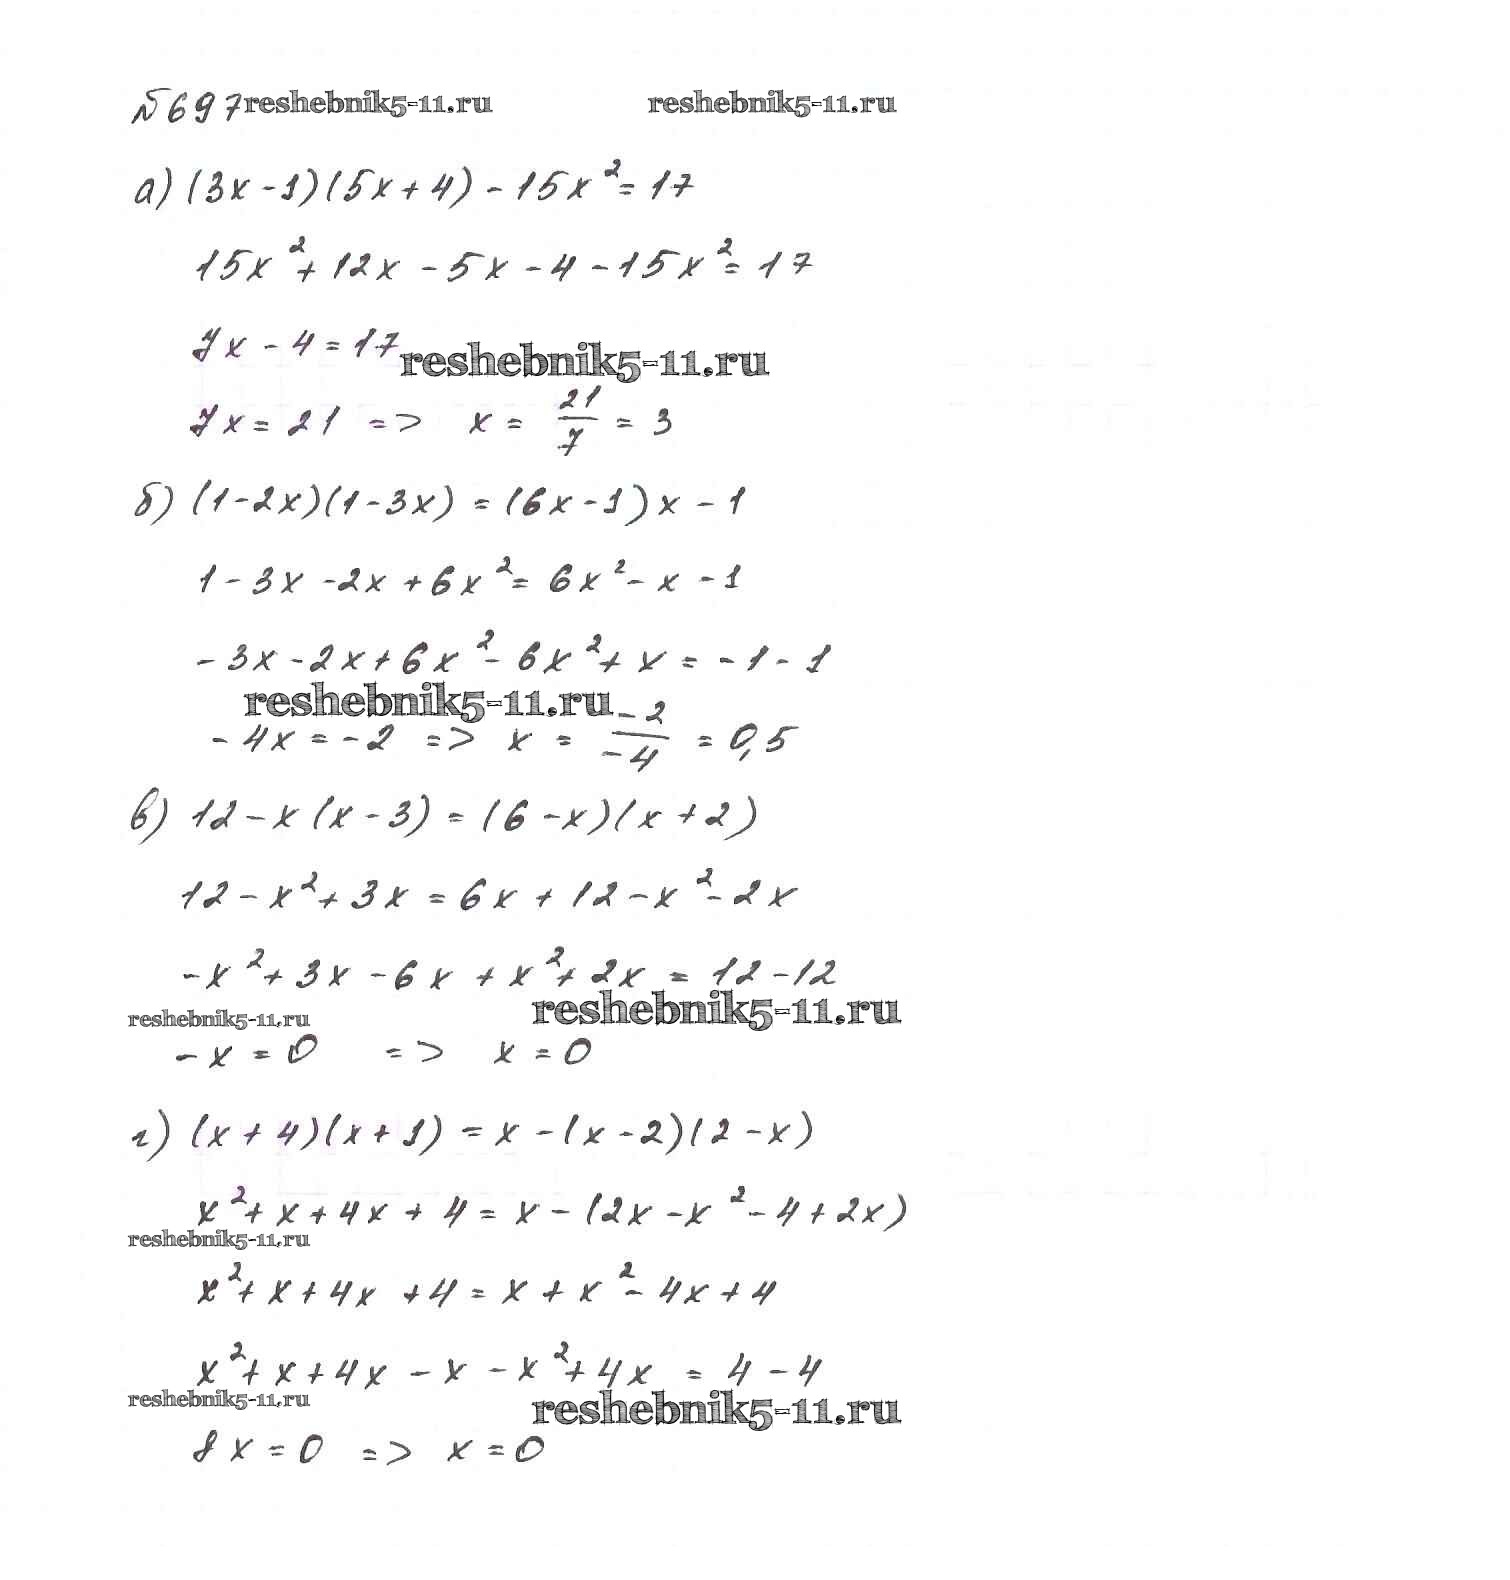 №697 reshebnik5-11.ru reshebnik5-11.ru
а) (3x-1)(5x+4)-15x²=17
15x²+12x-5x-4-15x²=17
7x-4=17
reshebnik5-11.ru
7x=21 => x = 21/7 = 3
б) (1-2x)(1-3x)=(6x-1)x-1
1-3x-2x+6x²=6x²-x-1
-3x-2x+6x²-6x²+x=-1-1
reshebnik5-11.ru
-4x=-2 => x = -2/-4 = 0,5
в) 12-x(x-3)=(6-x)(x+2)
12-x²+3x=6x+12-x²-2x
-x²+3x-6x+x²+2x=12-12
reshebnik5-11.ru reshebnik5-11.ru
-x=0 => x=0
г) (x+4)(x+1)=x-(x-2)(2-x)
x²+x+4x+4=x-(2x-x²-4+2x)
reshebnik5-11.ru
x²+x+4x+4=x+x²-4x+4
x²+x+4x-x-x²+4x=4-4
reshebnik5-11.ru reshebnik5-11.ru
8x=0 => x=0